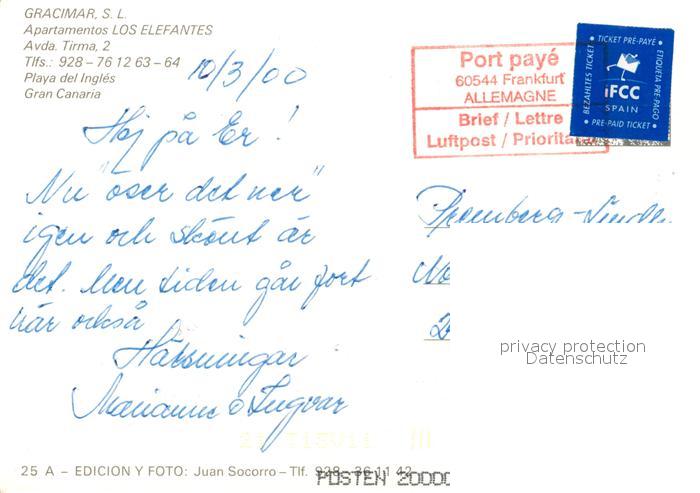 GRACIMAR, S. L.
Apartamentos LOS ELEFANTES
Avda. Tirma, 2
Tlfs.: 928 – 76 12 63 – 64
Playa del Inglés
Gran Canaria
10/3/00
Hej på Er!
Nu "öser det ner"
igen och skönt är
det. Men tiden går fort
när också
Hälsningar
Marianne o Ingvar
Port payé
60544 Frankfurt
ALLEMAGNE
Brief / Lettre
Luftpost / Prioritaire
• TICKET PRE-PAYÉ •
BEZAHLTES TICKET
ETIQUETA PRE-PAGO
iFCC
SPAIN
• PRE-PAID TICKET •
privacy protection
Datenschutz
25 A – EDICION Y FOTO: Juan Socorro – Tlf. 928 – 36 11 42
POSTEN 20000